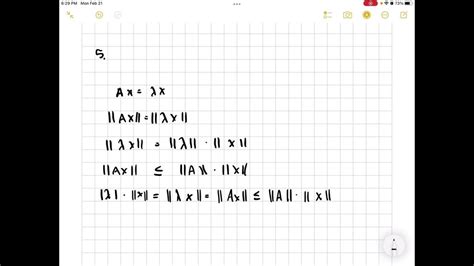 6:29 PM Mon Feb 21
73%
5.
Ax = λx
||Ax|| = ||λx||
||λx|| = ||λ|| · ||x||
||Ax|| ≤ ||A|| · ||x||
|λ| · ||x|| = ||λx|| = ||Ax|| ≤ ||A|| · ||x||